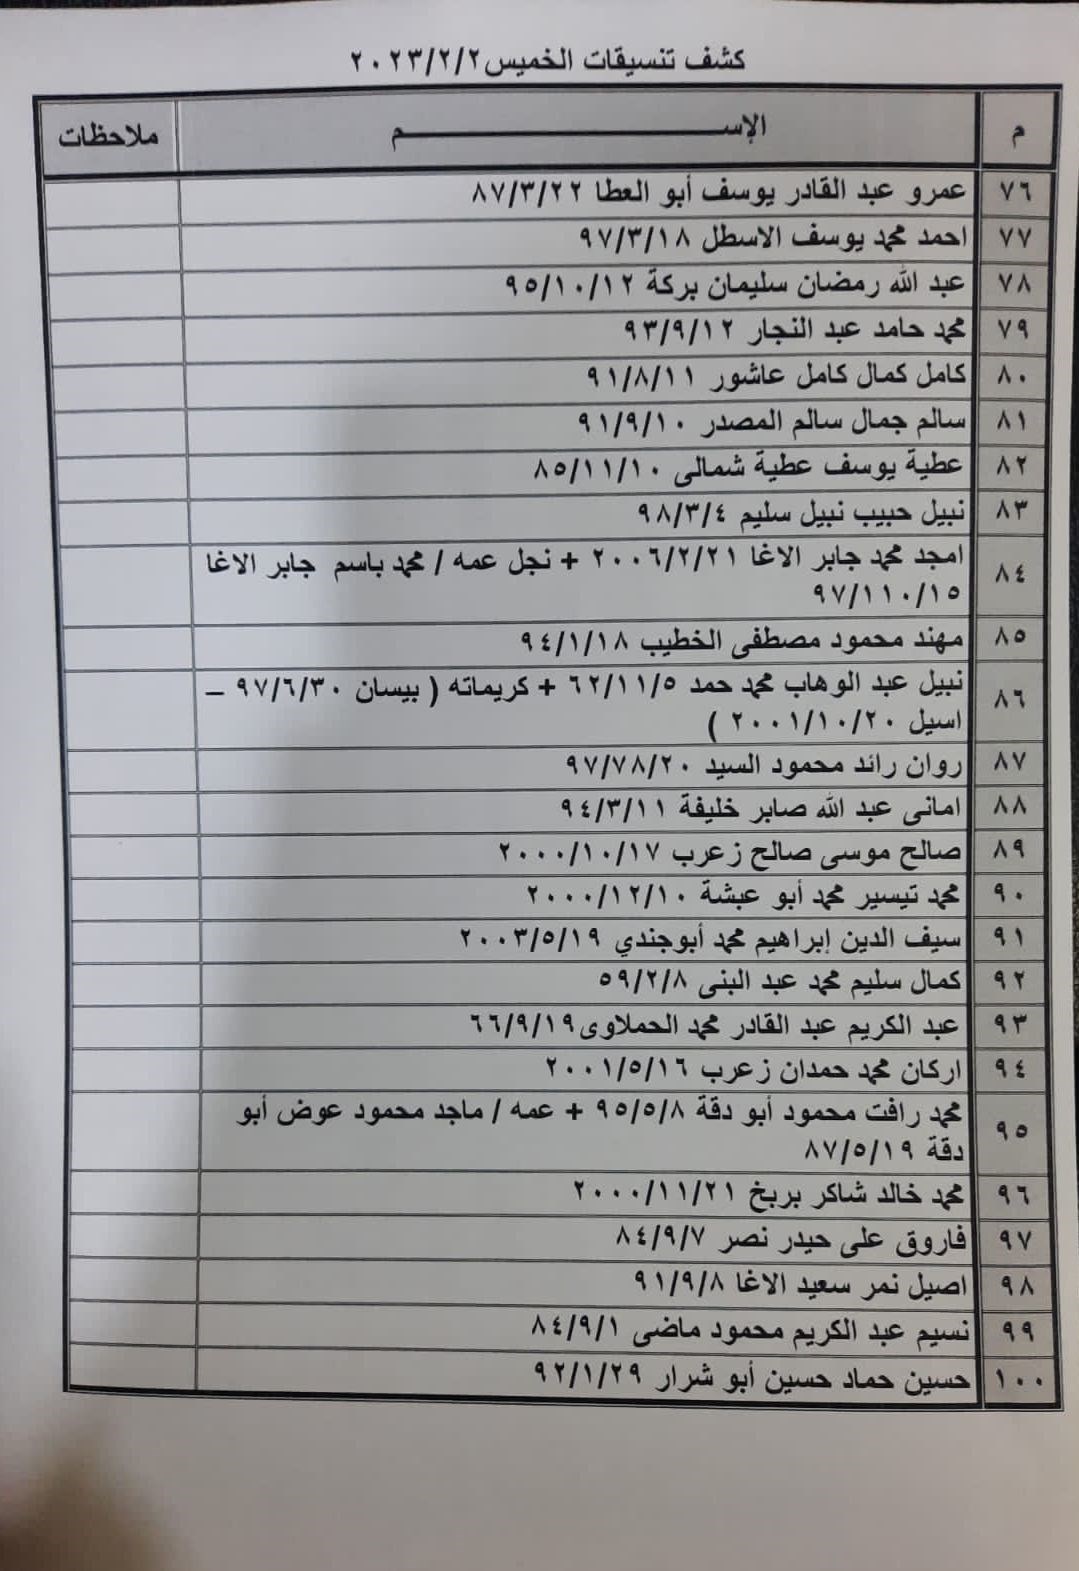 كشف تنسيقات الخميس ٢٠٢٣/٢/٢
م الإســـــــــــــم ملاحظات
٧٦ عمرو عبد القادر يوسف أبو العطا ٨٧/٣/٢٢
٧٧ احمد محمد يوسف الاسطل ٩٧/٣/١٨
٧٨ عبد الله رمضان سليمان بركة ٩٥/١٠/١٢
٧٩ محمد حامد عبد النجار ٩٣/٩/١٢
٨٠ كامل كمال كامل عاشور ٩١/٨/١١
٨١ سالم جمال سالم المصدر ٩١/٩/١٠
٨٢ عطية يوسف عطية شمالى ٨٥/١١/١٠
٨٣ نبيل حبيب نبيل سليم ٩٨/٣/٤
٨٤ امجد محمد جابر الاغا ٢٠٠٦/٢/٢١ + نجل عمه / محمد باسم جابر الاغا
٩٧/١١٠/١٥
٨٥ مهند محمود مصطفى الخطيب ٩٤/١/١٨
٨٦ نبيل عبد الوهاب محمد حمد ٦٢/١١/٥ + كريماته ( بيسان ٩٧/٦/٣٠ –
اسيل ٢٠٠١/١٠/٢٠ )
٨٧ روان رائد محمود السيد ٩٧/٧٨/٢٠
٨٨ امانى عبد الله صابر خليفة ٩٤/٣/١١
٨٩ صالح موسى صالح زعرب ٢٠٠٠/١٠/١٧
٩٠ محمد تيسير محمد أبو عبشة ٢٠٠٠/١٢/١٠
٩١ سيف الدين إبراهيم محمد أبوجندي ٢٠٠٣/٥/١٩
٩٢ كمال سليم محمد عبد البنى ٥٩/٢/٨
٩٣ عبد الكريم عبد القادر محمد الحملاوى ٦٦/٩/١٩
٩٤ اركان محمد حمدان زعرب ٢٠٠١/٥/١٦
٩٥ محمد رافت محمود أبو دقة ٩٥/٥/٨ + عمه / ماجد محمود عوض أبو
دقة ٨٧/٥/١٩
٩٦ محمد خالد شاكر بربخ ٢٠٠٠/١١/٢١
٩٧ فاروق على حيدر نصر ٨٤/٩/٧
٩٨ اصيل نمر سعيد الاغا ٩١/٩/٨
٩٩ نسيم عبد الكريم محمود ماضى ٨٤/٩/١
١٠٠ حسين حماد حسين أبو شرار ٩٢/١/٢٩